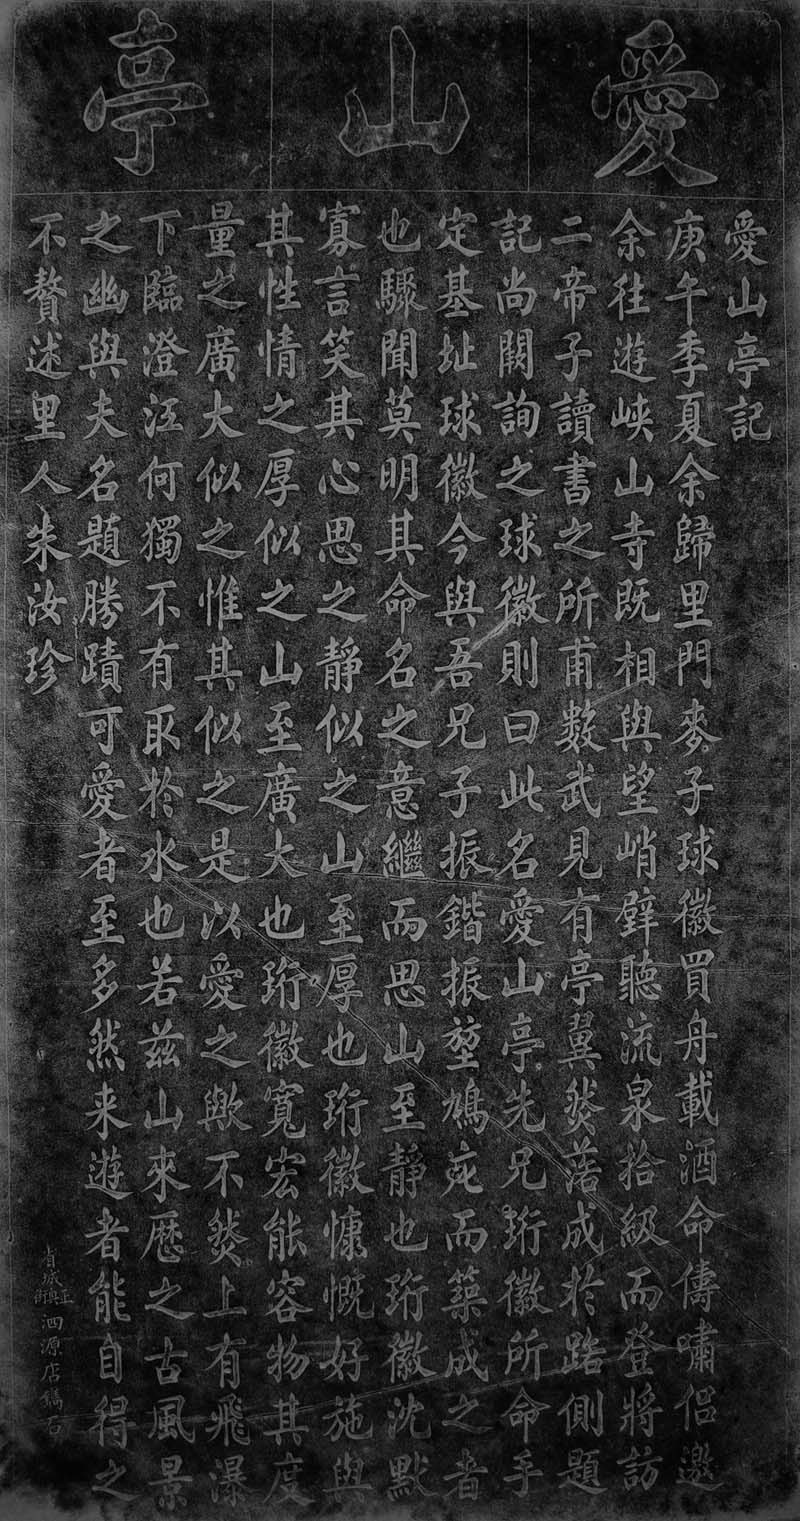 愛山亭
愛山亭記
庚午季夏余歸里門麥子球徽買舟載酒命儔嘯侶邀
余往遊峽山寺既相與望峭壁聽流泉拾級而登將訪
二帝子讀書之所甫數武見有亭翼然落成於路側題
記尚闕詢之球徽則曰此名愛山亭先兄珩徽所命手
定基址球徽今與吾兄子振鍇振堃鳩庀而築成之者
也驟聞莫明其命名之意繼而思山至靜也珩徽沈默
寡言笑其心思之靜似之山至厚也珩徽慷慨好施與
其性情之厚似之山至廣大也珩徽寬宏能容物其度
量之廣大似之惟其似之是以愛之歟不然上有飛瀑
下臨澄江何獨不有取於水也若茲山來歷之古風景
之幽與夫名題勝蹟可愛者至多然来遊者能自得之
不贅述里人朱汝珍
省城正南街泗源店鐫石